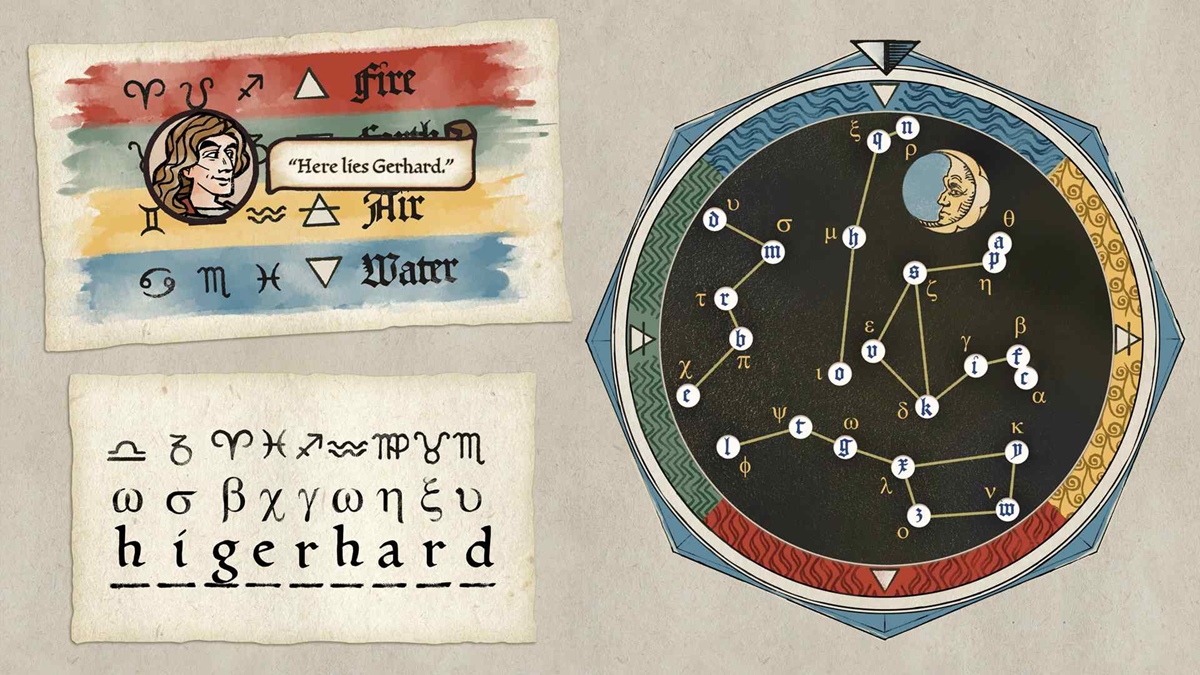 ♈ ♌ ♐ △ Fire
Earth
“Here lies Gerhard.”
♊ ♒ Air
♋ ♏ ♓ ▽ Water
♎ ♑ ♈ ♓ ♐ ♒ ♍ ♉ ♏
ω σ β χ γ ω η ξ υ
h i g e r h a r d
ξ q n ρ
d υ
m σ
μ h
a θ
p η
s ζ
τ r
b π
ε v
γ i
β f
c α
χ e
ι o
δ k
ψ t
l φ
g ω
x λ
κ y
ν w
z ο